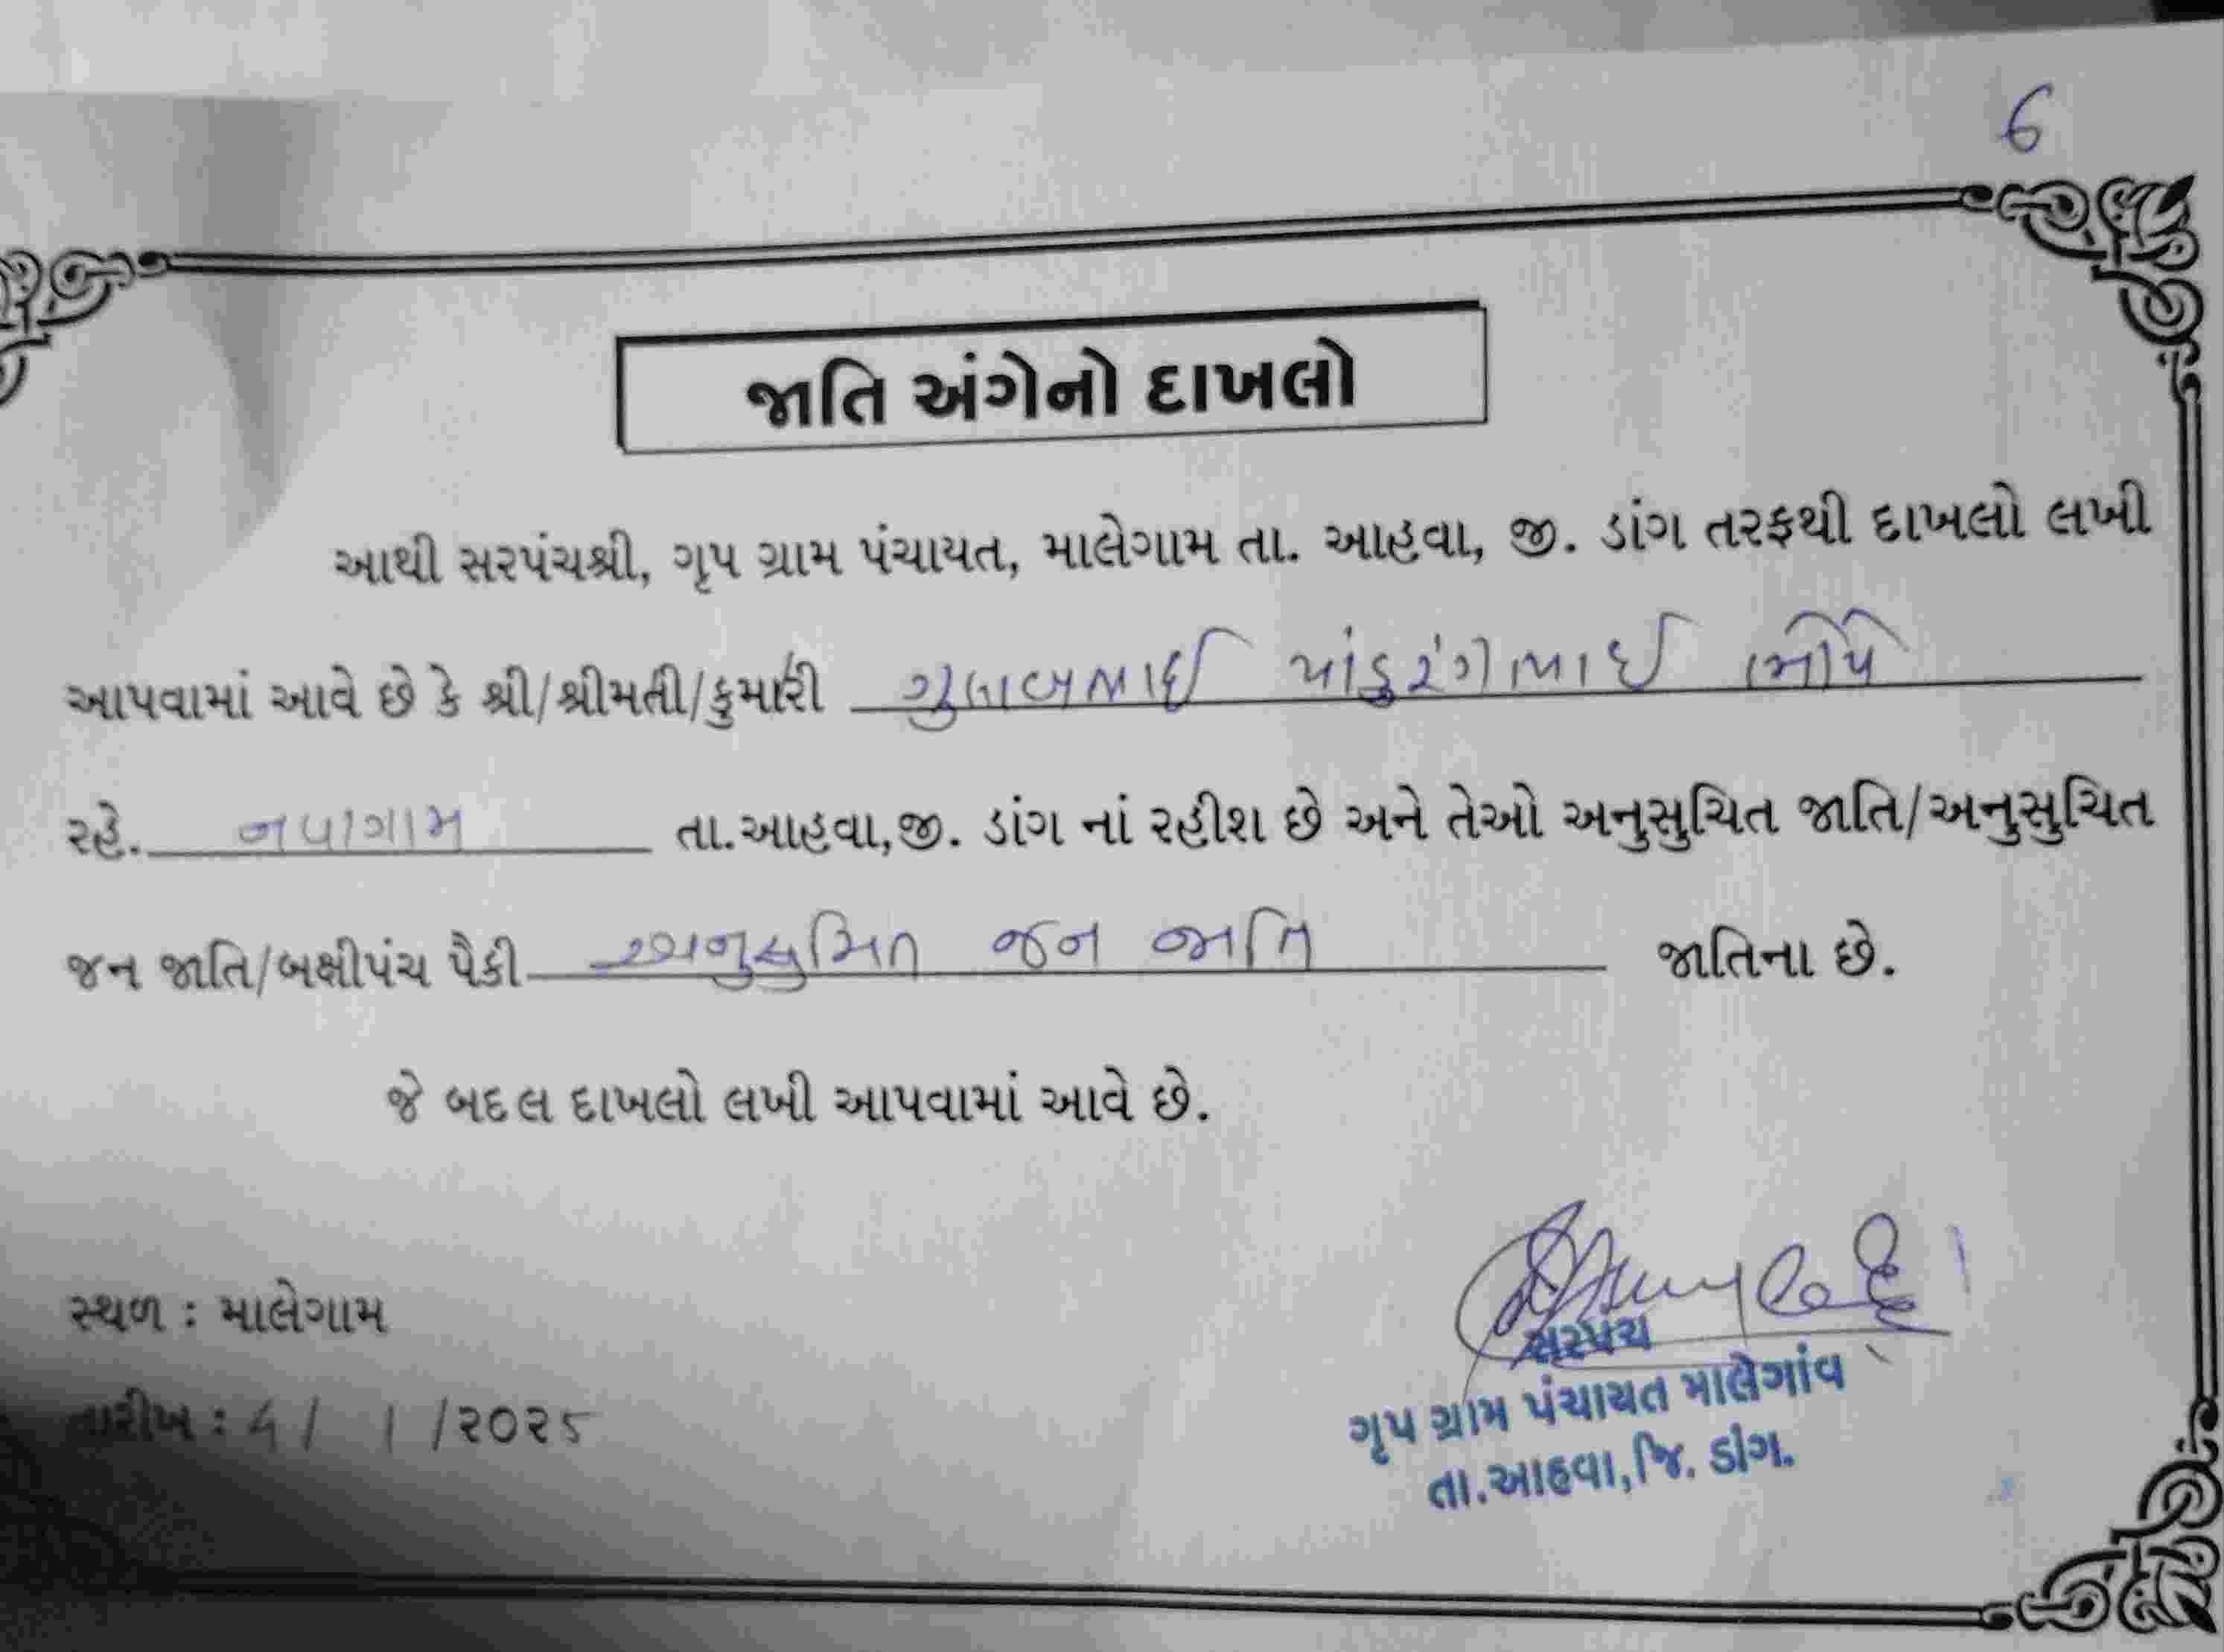 6
જાતિ અંગેનો દાખલો
આથી સરપંચશ્રી, ગૃપ ગ્રામ પંચાયત, માલેગામ તા. આહવા, જી. ડાંગ તરફથી દાખલો લખી
આપવામાં આવે છે કે શ્રી/શ્રીમતી/કુમારી ગુલાબભાઈ પાંડુરંગભાઈ ભોયે
રહે. નવાગામ તા.આહવા,જી. ડાંગ નાં રહીશ છે અને તેઓ અનુસુચિત જાતિ/અનુસુચિત
જન જાતિ/બક્ષીપંચ પૈકી અનુસુચિત જન જાતિ જાતિના છે.
જે બદલ દાખલો લખી આપવામાં આવે છે.
સ્થળ : માલેગામ
તારીખ : 4/ 1 /૨૦૨૫
સરપંચ
ગૃપ ગ્રામ પંચાયત માલેગાંવ
તા.આહવા,જિ. ડાંગ.